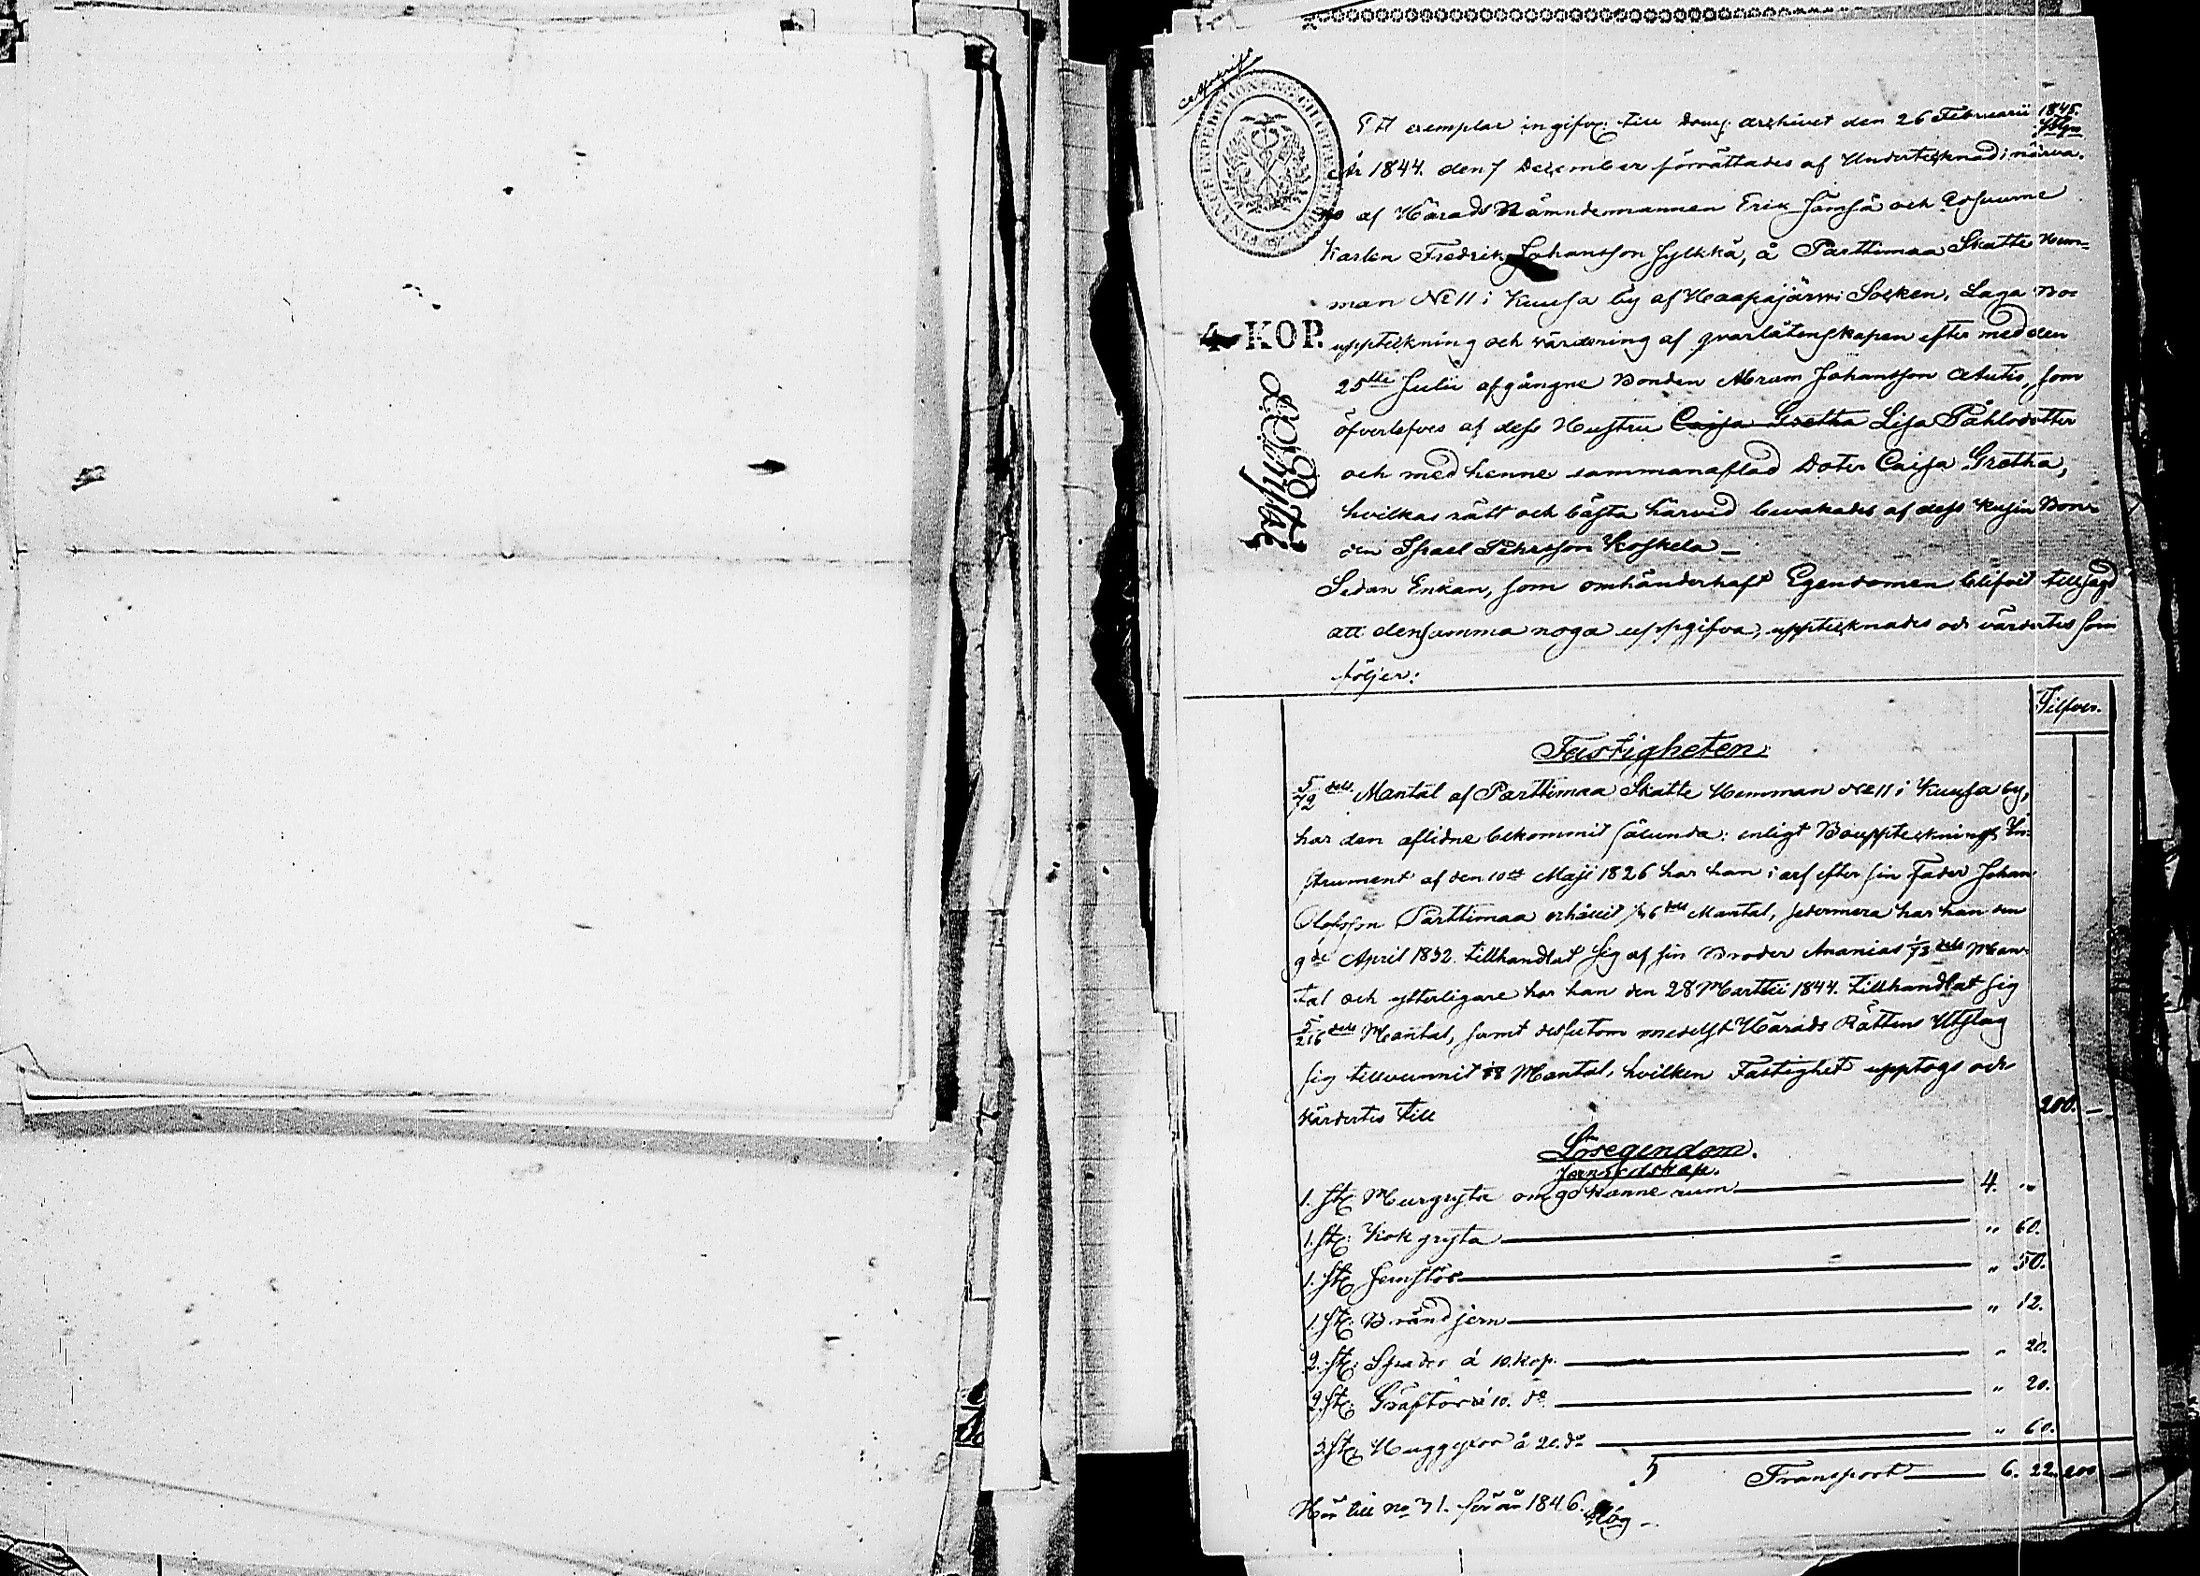 Afskrift
Ett exemplar ingifv: till Domq: archivet den 26 Februarii 1845.
År 1844. den 7 December förrättades af Undertecknad i närva-
ro af Härads Nämndemannen Erik Jämsä och Lofsuume
Karlen Fredrik Johansson Jylkkä, å Parttimaa Skatte Hem-
man No 11 i Kuusa by af Haapajärvi Socken, Laga Bo-
4 KOP.
uppteckning och värdering af qvarlåtenskapen efter med den
25tte Julii afgångne Bonden Abram Johansson Autio, som
öfverlefves af dess Hustru Caisa Gretha Lisa Påhlsdotter
och med henne sammanaflad Doter Caisa Gretha,
hvilkas rätt och bästa härvid bevakades af dess Kusin Bon-
den Israel Pehrsson Koskela —
Sedan Enkan, som omhänderhaft Egendomen blifvit tillsagd
att densamma noga uppgifva, upptecknades och värdertes som
följer:
Silfver.
Fastigheten:
5/72 dels Mantal af Parttimaa Skatte Hemman No 11 i Kuusa by,
har den aflidne bekommit sålunda: enligt Bouppteckningsk In-
strument af den 10de Maji 1826 har han i arf efter sin Fader Johan
Olofsson Parttimaa erhållit 1/36 dels Mantal, sedermera har han den
9de April 1832. tillhandlat sig af sin Broder Ananias 1/73 dels Man-
tal och ytterligare har han den 28 Marttii 1844. tillhandlat sig
5/216 dels Mantal, samt dessutom medelst Härads Rättens Utslag
sig tillvunnit 1/18 Mantal, hvilken Fastighet upptogs och
värdertes till 200. —
Lösegendom.
Jernredskap.
1. st: Murgryta om 90 Kanne rum — 4. "
1. st: Kok gryta — " 60.
1. st: Jernstör — " 50.
1. st: Brändjern — " 12.
2. st: Spader á 10. kop. — " 20.
2. st: Gräftor á 10. do — " 20.
3. st: Huggyxor á 20. do — " 60.
Transport — 6. 22. 200 —
Hör till No 31. för år 1846.